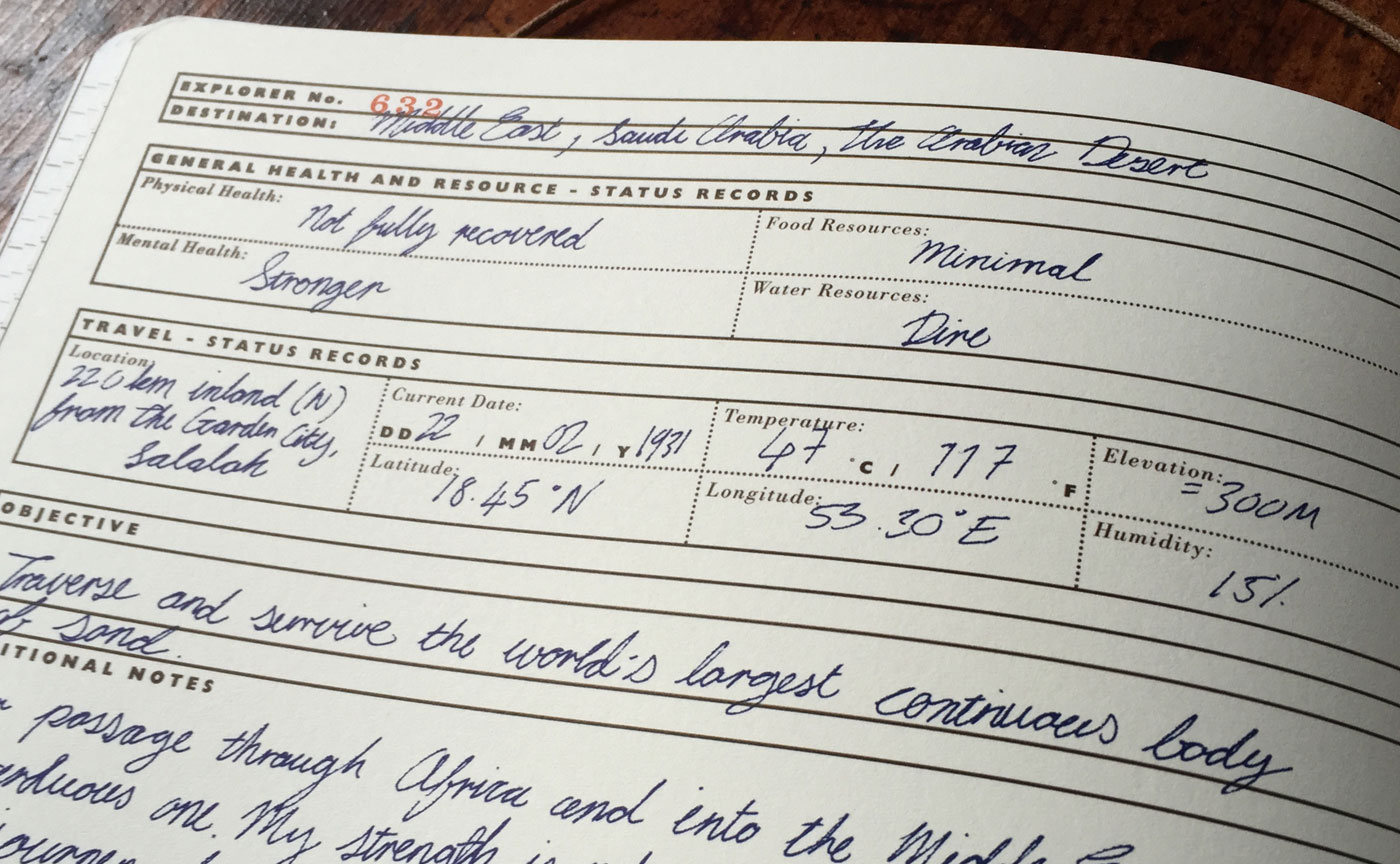 EXPLORER No. 632
DESTINATION: Middle East, Saudi Arabia, the Arabian Desert
GENERAL HEALTH AND RESOURCE - STATUS RECORDS
Physical Health: Not fully recovered
Food Resources: Minimal
Mental Health: Stronger
Water Resources: Dire
TRAVEL - STATUS RECORDS
Location:
220km inland (N)
from the Garden City,
Salalah
Current Date:
DD 22 / MM 02 / Y 1931
Temperature:
47 °C / 117 °F
Elevation:
= 300M
Latitude: 18.45°N
Longitude: 53.30°E
Humidity:
15%
OBJECTIVE
Traverse and survive the world's largest continuous body
of sand.
ITIONAL NOTES
passage through Africa and into the Middle
arduous one. My strength is